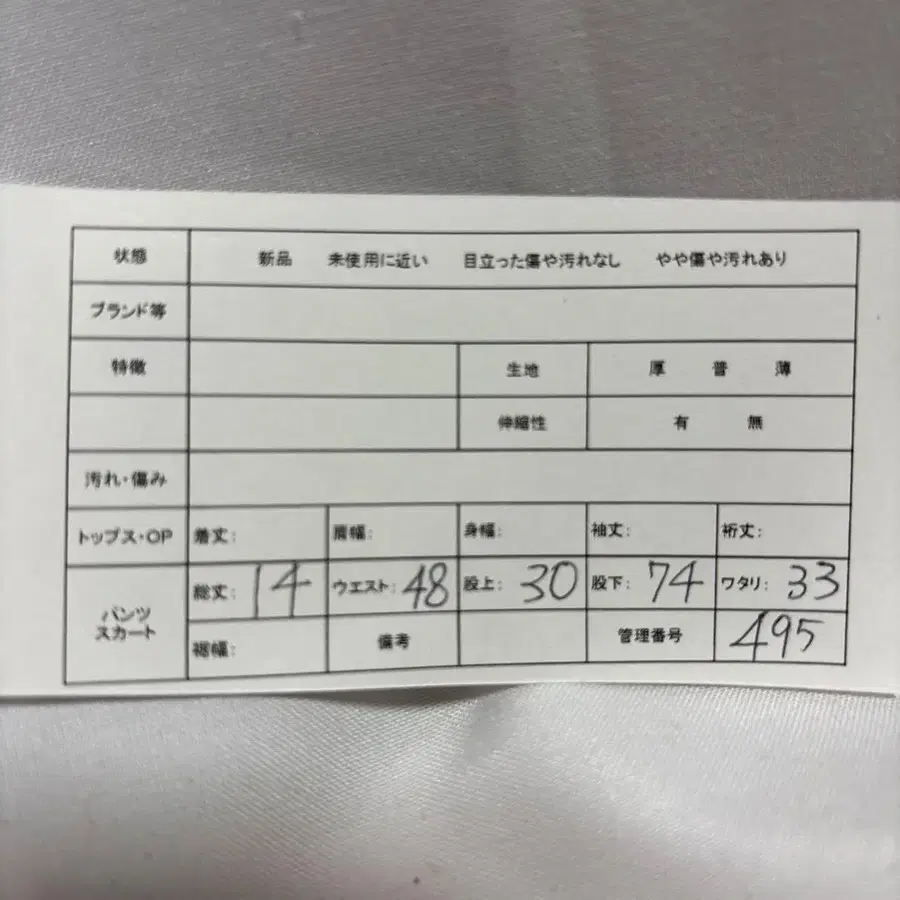 状態 新品 未使用に近い 目立った傷や汚れなし やや傷や汚れあり
ブランド等
特徴 生地 厚 普 薄
伸縮性 有 無
汚れ・傷み
トップス・OP 着丈: 肩幅: 身幅: 袖丈: 裄丈:
パンツ スカート 総丈: 14 ウエスト: 48 股上: 30 股下: 74 ワタリ: 33
裾幅: 備考 管理番号 495